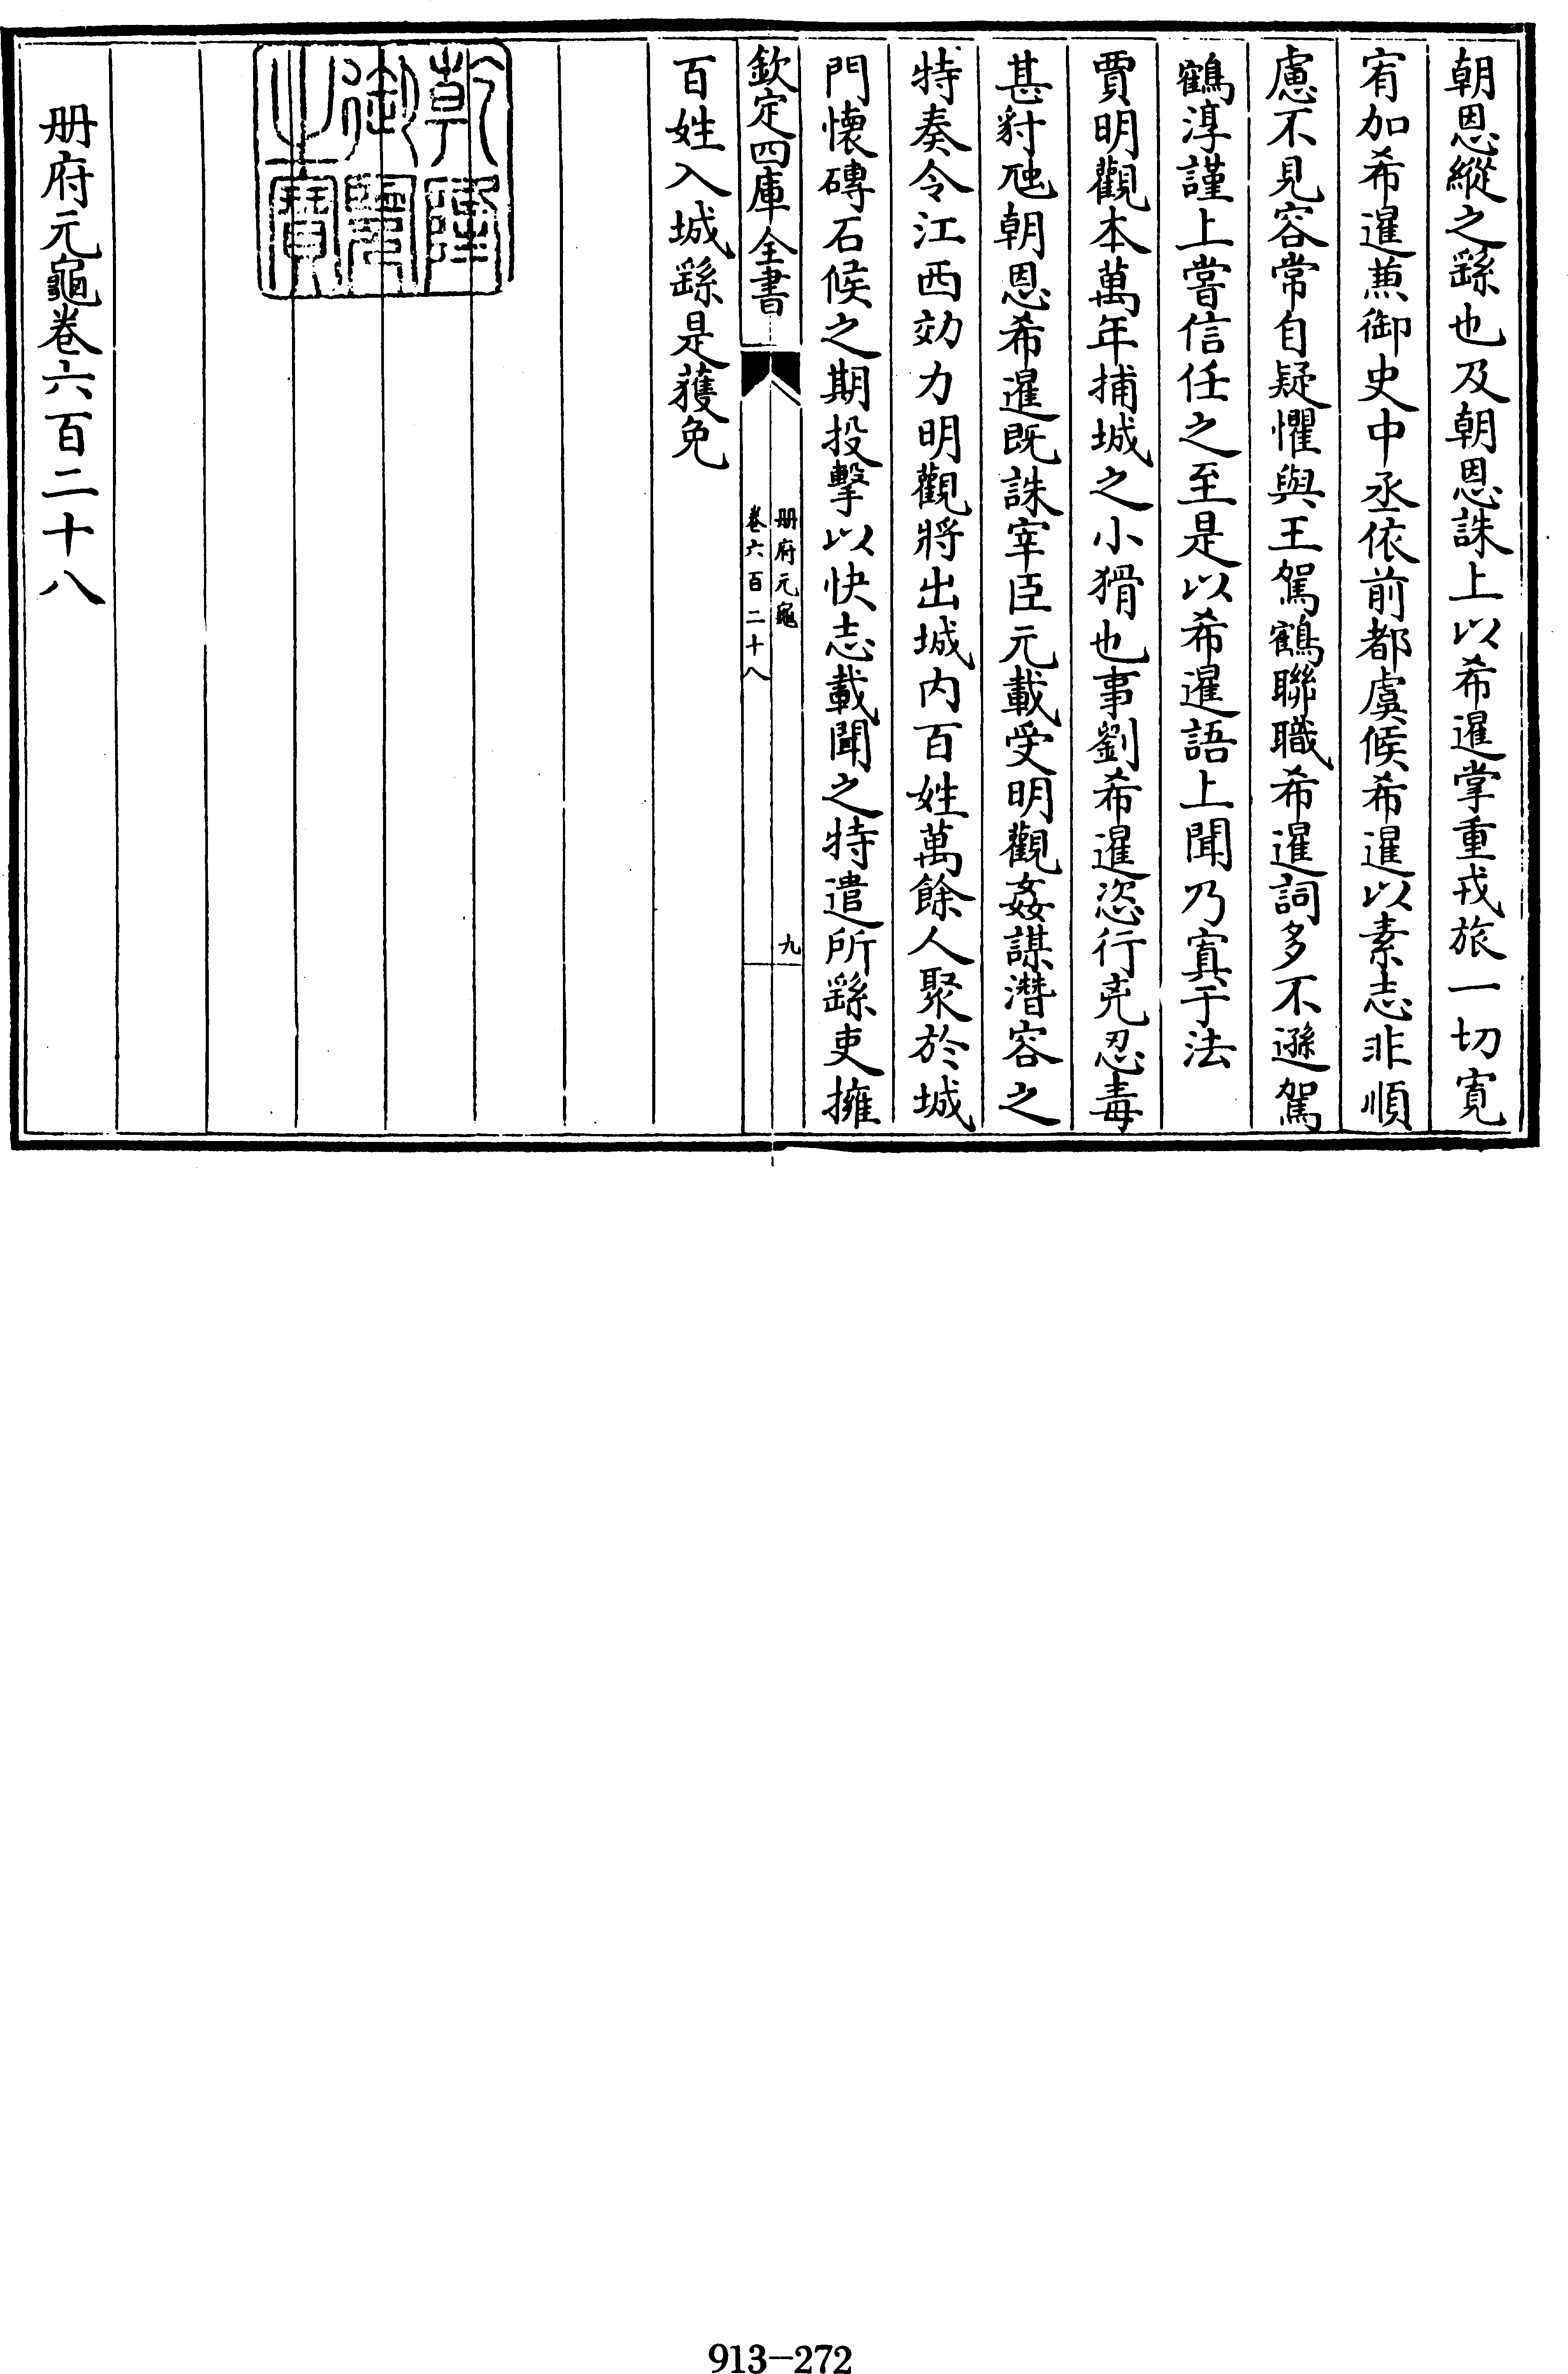 朝恩縱之繇也及朝恩誅上以希暹掌重戎旅一切寛
宥加希暹兼御史中丞依前都虞候希暹以素志非順
慮不見容常自疑懼與王駕鶴聯職希暹詞多不遜駕
鶴淳謹上嘗信任之至是以希暹語上聞乃寘于法
賈明觀本萬年捕城之小猾也事劉希暹恣行兇忍毒
甚豺虺朝恩希暹既誅宰臣元載受明觀姦謀潛容之
特奏令江西効力明觀將出城内百姓萬餘人聚於城
門懷磚石候之期投擊以快志載聞之特遣所繇吏擁
欽定四庫全書
册府元龜
卷六百二十八
九
百姓入城繇是獲免
乾隆
御覽
之寶
册府元龜卷六百二十八
913-272